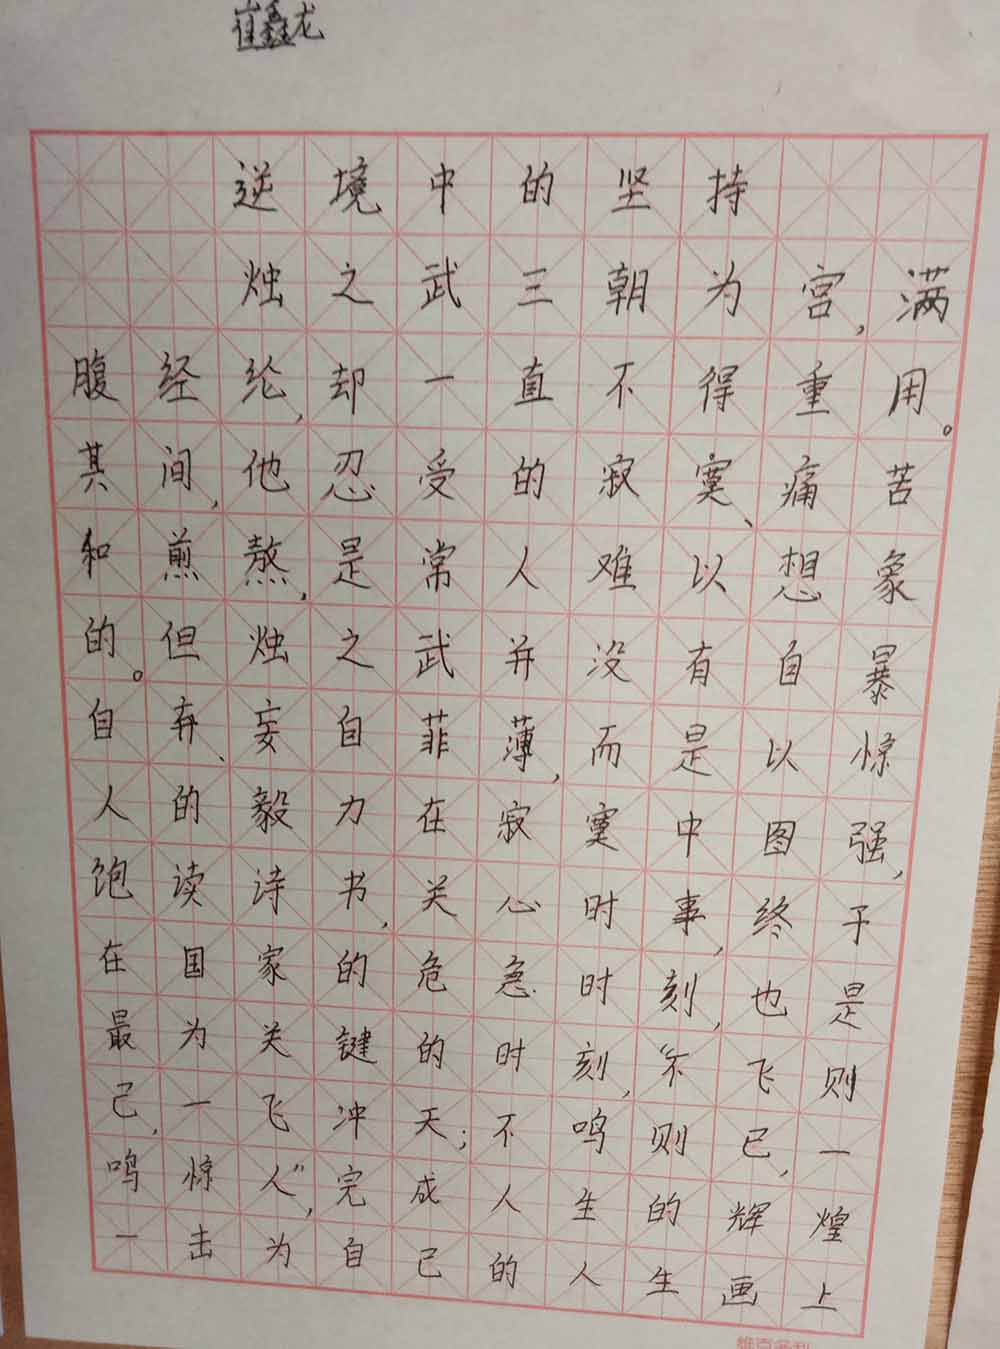 崔鑫龙
逆境中的坚持
烛之武三朝为宫,满
腹经纶,却一直不得重用。
其间,他忍受的寂寞、痛苦
和煎熬,是常人难以想象
的。但烛之武并没有自暴
自弃、妄自菲薄,而是以惊
人的毅力在寂寞中图强,
饱读诗书,关心时事,终于
在国家的危急时刻,也是
最为关键的时刻,“不飞则
己,一飞冲天;不鸣则已,一
鸣惊人”,完成人生的辉煌
一击为自己的人生画上